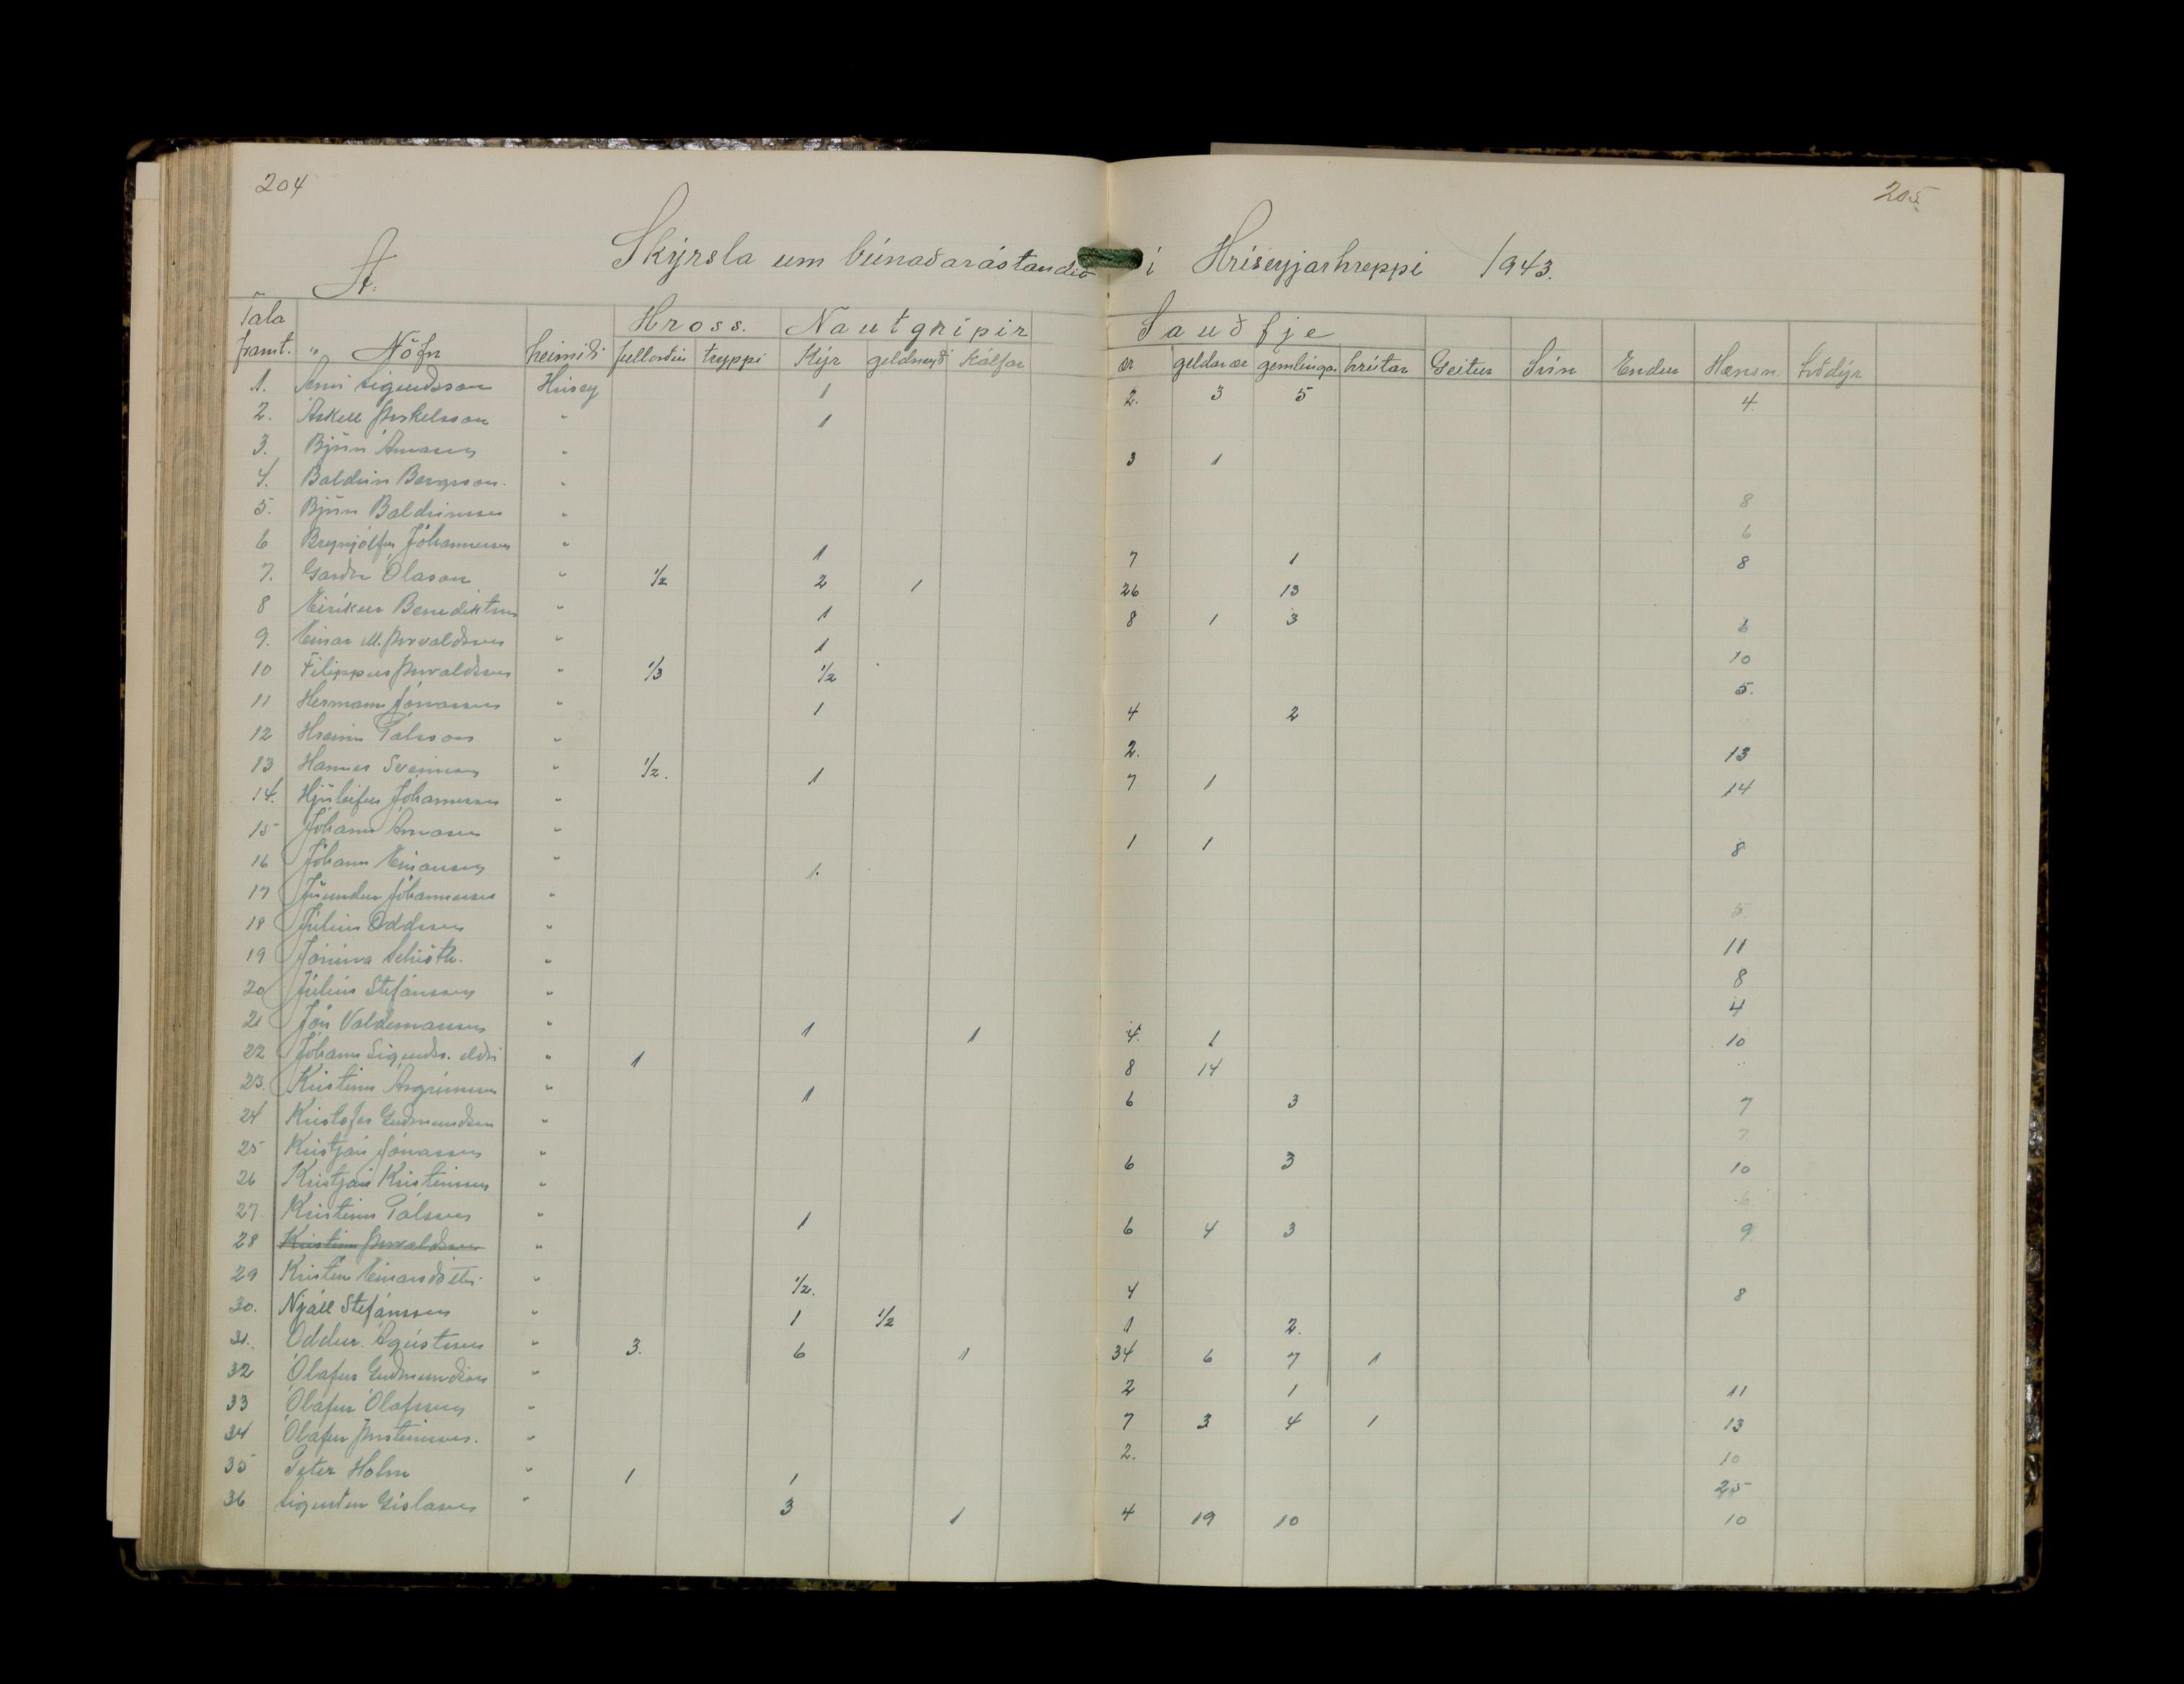 204
205
A. Skýrsla um búnaðarástandið í Hríseyjarhreppi 1943.
Hross. Nautgripir Sauðfje
Tala framt. Nöfn heimili fullorðin tryppi Kýr geldneyti Kálfar ær geldar ær gemlingar hrútar Geitur Svín Endur Hænsn. Loðdýr
1. Árni Sigurðsson Hrísey 1 2. 3 5 4.
2. Áskell Þorkelsson " 1
3. Björn Árnason " 3 1
4. Baldvin Bergsson. "
5. Björn Baldvinsson " 8
6 Brynjólfur Jóhannesson " 1 7 1 6 8
7. Garðar Ólason " 1/2 2 1 26 13
8 Eiríkur Benediktsson " 1 8 1 3 6
9. Einar M. Þorvaldsson " 1 10
10 Filippus Þorvaldsson " 1/3 1/2 5.
11 Hermann Jónasson " 1 4 2
12 Hreinn Pálsson " 2. 13
13 Hannes " 1/2. 1 7 1 14
14. Hjörleifur Jóhannsson "
15 Jóhann Árnason " 1 1 8
16 Jóhann Einarsson " 1.
17 Jörundur Jóhannesson " 5
18 Júlíus Oddsson " 11
19 Jónína Schiöth. " 8
20 Júlíus Stefánsson " 4
21 Jón Valdemarsson " 1 1 4. 1 10
22 Jóhann Sigurðs. eldri " 1 8 14
23. Kristinn Ásgrímsson " 1 6 3 7
24 Kristófer Guðmundsson " 7
25 Kristján Jónasson " 6 3 10
26 Kristján Kristinsson " 6
27. Kristinn Pálsson " 1 6 4 3 9
28 Kristinn Þorvaldsson "
29 Kristín Einarsdóttir " 1/2. 4 8
30. Njáll Stefánsson " 1 1/2 1 2.
31. Oddur Ágústsson " 3. 6 1 34 6 7 1
32 Ólafur Guðmundsson " 2 1 11
33 Ólafur Ólafsson " 7 3 4 1 13
34 Ólafur Þorsteinsson. " 2. 10
35 Peter Holm " 1 1 25
36 Sigurður Gíslason " 3 1 4 19 10 10